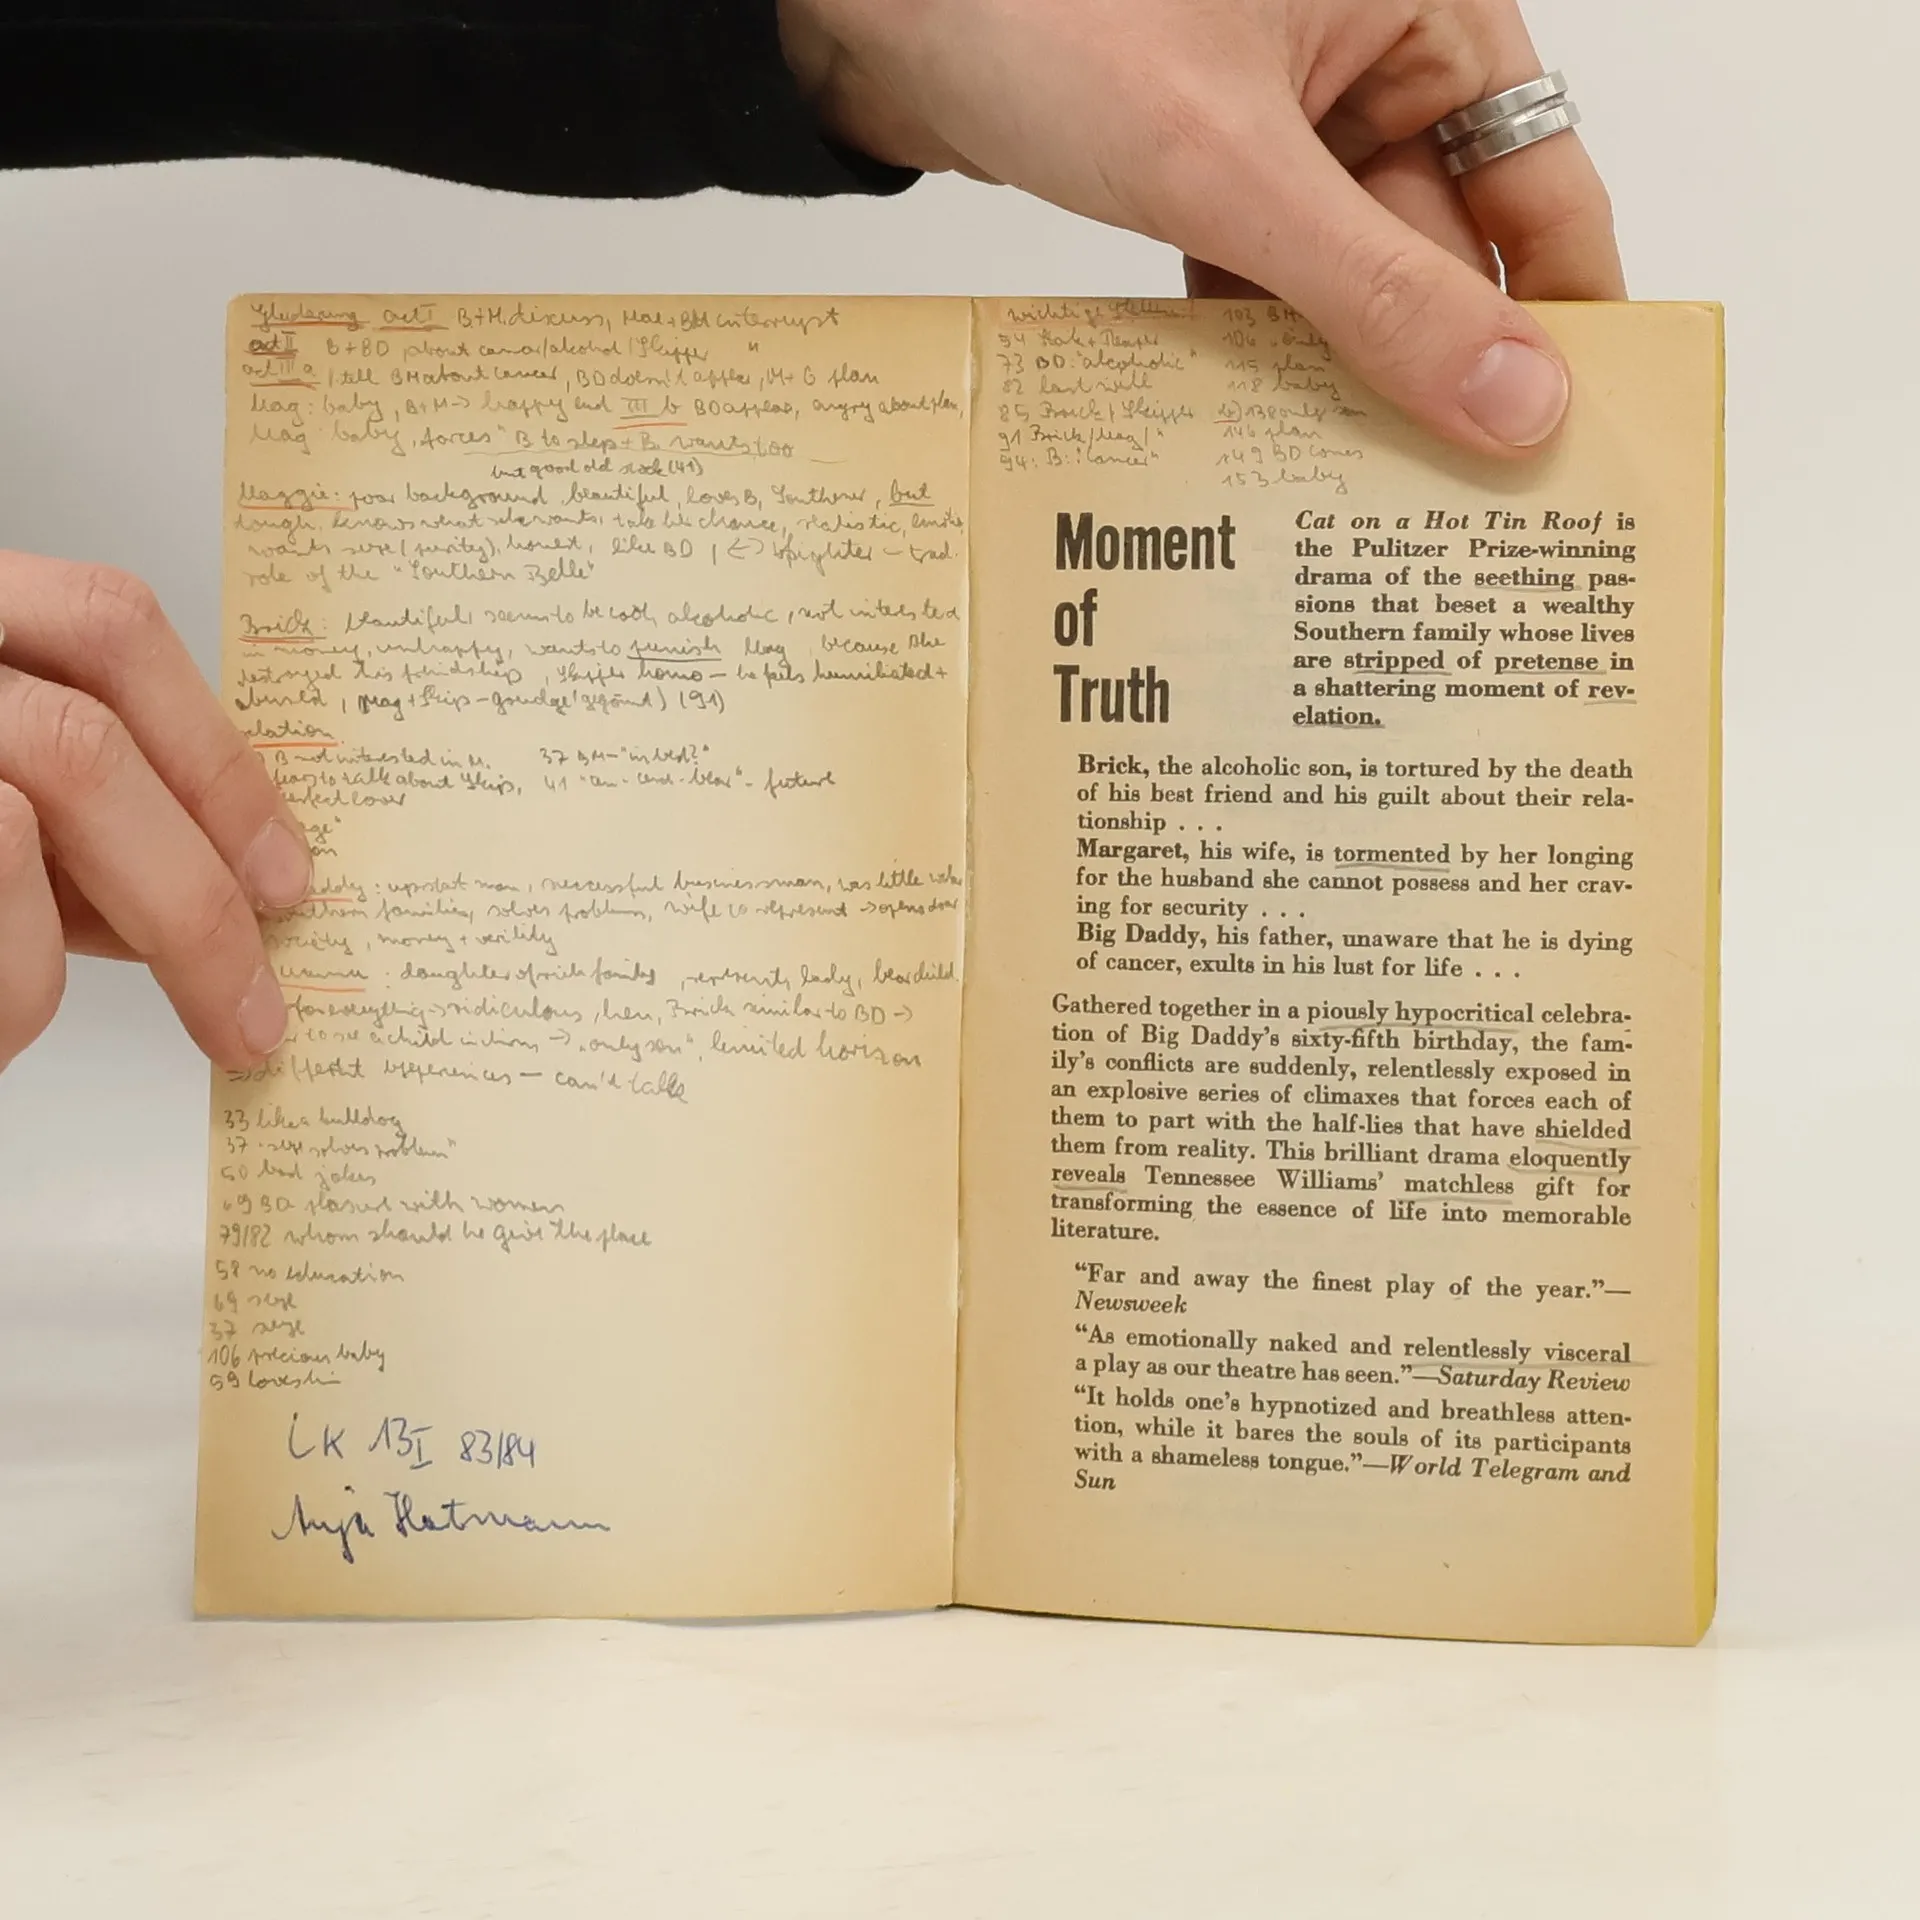 Gliederung act I B+M discuss, Mae+BM interrupt
act II B+BD about cancer/alcohol/Skipper "
act III a / tell BM about cancer, BD doesn't appear, M+G plan
Mag: baby, B+M -> happy end III b BD appears, angry about plan,
Mag baby, "forces" B to sleep + B. wants too
but good old stock (41)
Maggie: poor background, beautiful, loves B, Southener, but
tough, knows what she wants, take her chance, realistic, 
wants sexe (purity), honest, like BD, fighter – trad.
role of the "Southern Belle"
Brick: beautiful, seems to be cool, alcoholic, not interested
in money, unhappy, wants to punish Mag because she
destroyed his friendship, Skipper homo – he feels humiliated +
Mag + Skip – (91)
B not interested in M. 37 BM – "in bed?"
to talk about Skip, 41 future
lover
successful businessman, was little
families, solves problems, wife to represent ->
money + virility
: daughter of rich family, represents lady, bear child.
for everything -> ridiculous, Brick similar to BD ->
to see a child in him -> "only son", limited horizon
=> different – can't talk
33 like a bulldog
37 sexe solves problem"
50 bad jokes
69 BD pleasure with women
79/82 whom should he give the place
58 no education
69 sexe
37 sexe
106 precious baby
59 loves him
LK 13 I 83/84
Anja Hotmann
wichtige Stellen
54
73 BD: "alcoholic"
82 last will
85 Brick/Skipper
91 Brick/Mag/"
94: B: "cancer"
103
106 only
115 plan
118 baby
b) 138 only son
146 plan
149 BD comes
153 baby
Moment
of
Truth
Cat on a Hot Tin Roof is
the Pulitzer Prize-winning
drama of the seething pas-
sions that beset a wealthy
Southern family whose lives
are stripped of pretense in
a shattering moment of rev-
elation.
Brick, the alcoholic son, is tortured by the death
of his best friend and his guilt about their rela-
tionship . . .
Margaret, his wife, is tormented by her longing
for the husband she cannot possess and her crav-
ing for security . . .
Big Daddy, his father, unaware that he is dying
of cancer, exults in his lust for life . . .
Gathered together in a piously hypocritical celebra-
tion of Big Daddy's sixty-fifth birthday, the fam-
ily's conflicts are suddenly, relentlessly exposed in
an explosive series of climaxes that forces each of
them to part with the half-lies that have shielded
them from reality. This brilliant drama eloquently
reveals Tennessee Williams' matchless gift for
transforming the essence of life into memorable
literature.
"Far and away the finest play of the year."—
Newsweek
"As emotionally naked and relentlessly visceral
a play as our theatre has seen."—Saturday Review
"It holds one's hypnotized and breathless atten-
tion, while it bares the souls of its participants
with a shameless tongue."—World Telegram and
Sun